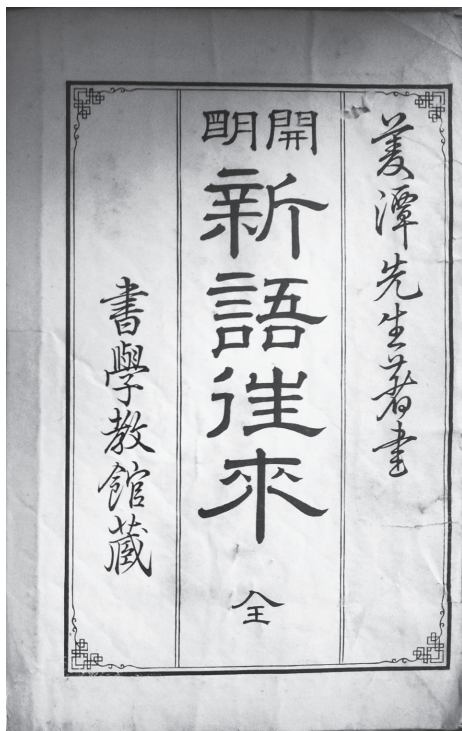 菱潭先生著書
開明
新語往來
全
書學教館藏